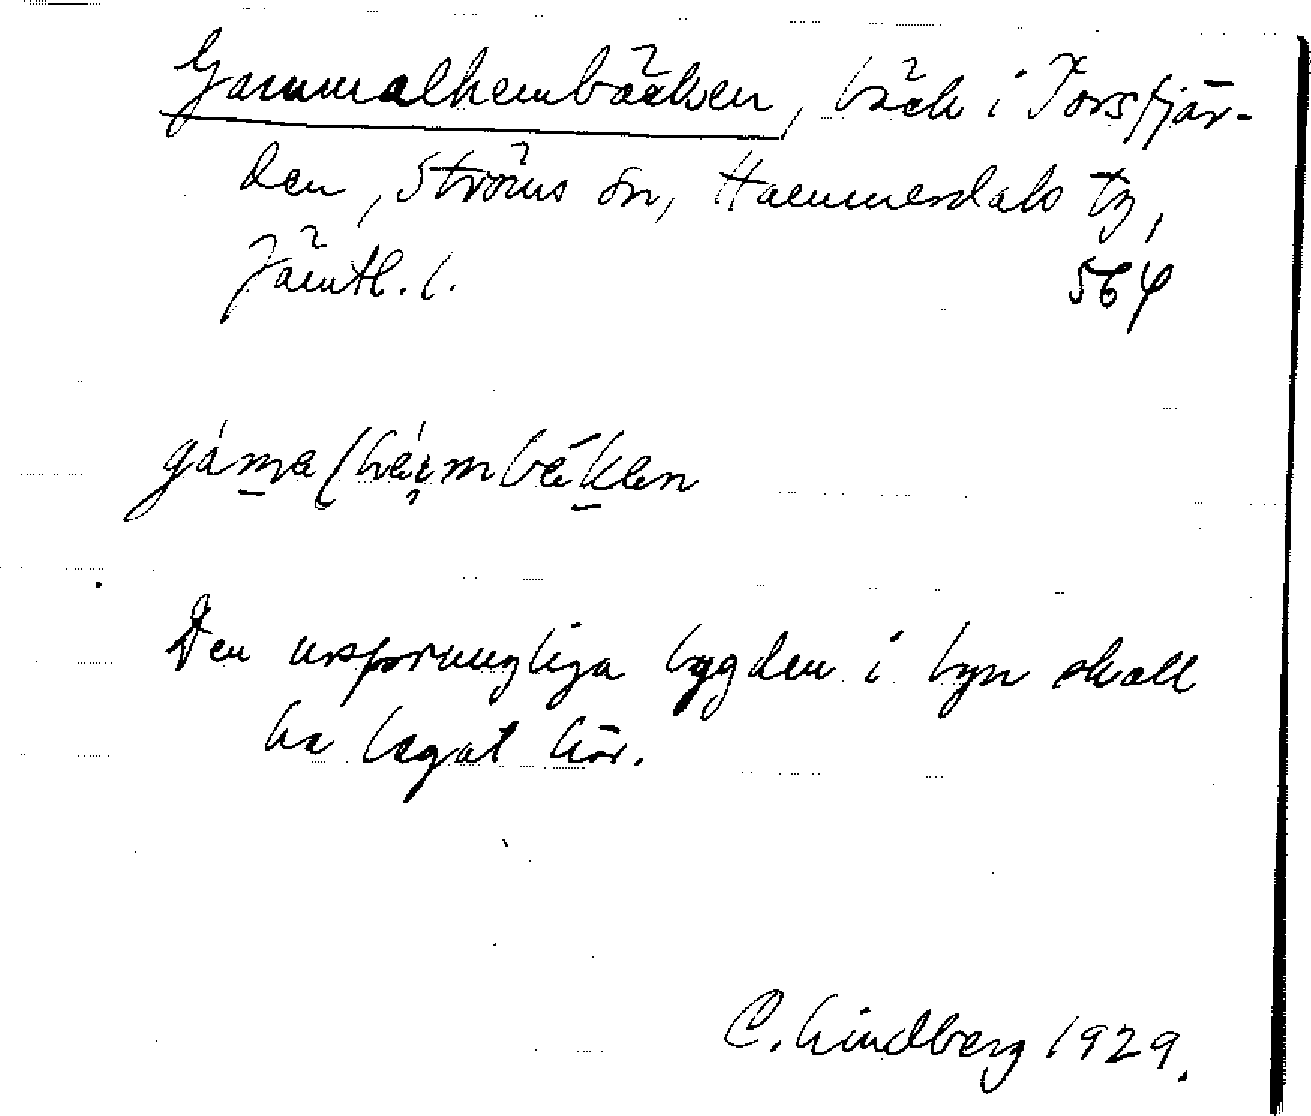 Gammalhembäcken, bäck i Torsfjär-
den, Ströms sn, Hammerdals tg,
Jämtl. l. 564
Den ursprungliga bygden i byn skall
ha legat här.
C. Lindberg 1929.